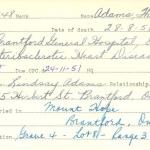 48 Rank Adams, Th
Date of death 28-8-5
Brantford General Hospital, B
terosclerotic Heart Disease
DVA (PC) 24-11-51 HQ
Lindsay Adams Relationship
5 Herbert St. Brantford, On
Mount Hope
Brantford, On
Grave 4 - Lot 81 - Range 3